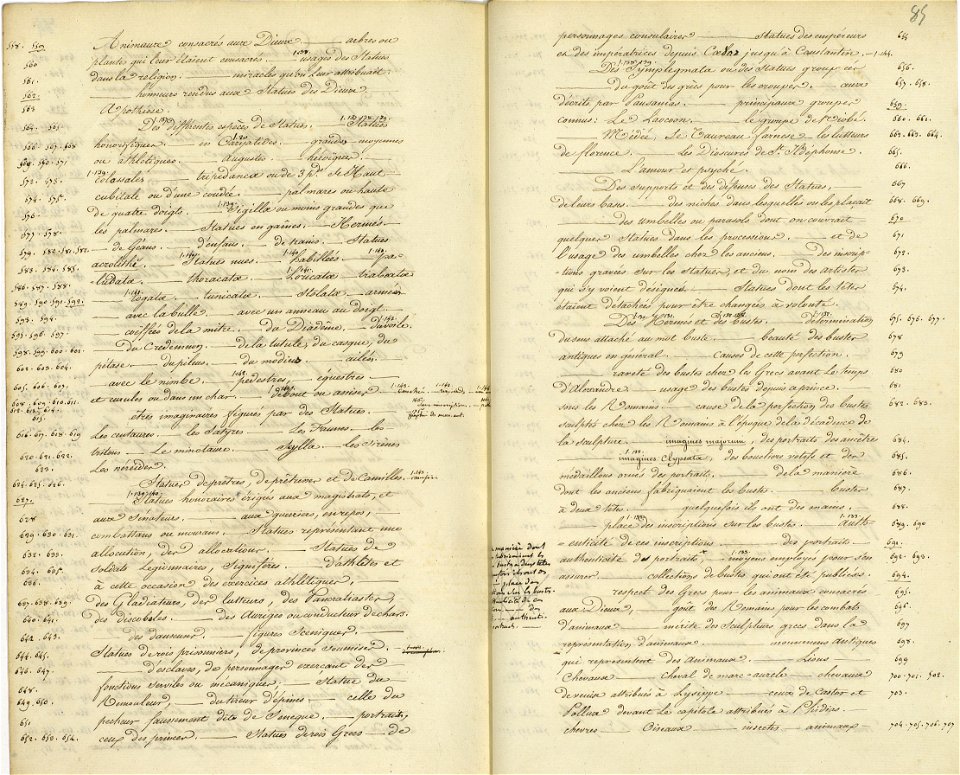 558. 559. Animaux consacrés aux Dieux — arbres ou
560. plantes qui leur étaient consacrés. — usages des Statues
561. dans la religion. — miracles qu'on leur attribuait.
562. — honneurs rendus aux Statues des Dieux.
563. Apothéose
564. 565. Des différentes espèces de Statues. — Statues
566. 567. 568 honorifiques — en Caryatides. — grandes moyennes
569. 570. 571 ou athlétiques. — augustes — héroïques
572. 573. colossales — tripedanea ou de 3 pds de Haut
574. 575. cubitale ou d'une coudée. — palmares ou haute
576. de quatre doigts. — Sigilla ou moins grandes que
577. 578 les palmares. — Statues en gaines. — Hermès.
579. — de Géans — d'enfans. — de nains. — Statues
acrolithe. — Statues nues. — habillées. — pa-
583. 584. 585. -ludata. — thoracata. — Loricata — trabeata
586. 587. 588 — togata. — tunicata. — Stolata — armées
589. 590. 591. 592. — avec la bulle. — avec un anneau au doigt.
593. 594. coëffées de la mitre. — du Diadème,
595. 596. 597 — du Credemnon. — de la tutule, du casque, du
pétase — du pileus. — du modius — ailées.
— avec le nimbe. — pedestres, équestres —
et curules ou dans un char. — debout ou assises
êtres imaginaires figurés par des Statues.
616. 617. 618. 619 Les centaures. — les Satyres — Les Faunes — les
620. 621. 622. tritons — Le minotaure. — Scylla — les Sirènes
623. Les néréides.
624. 625. 626. Statues de prêtres, de prêtresses et de Camilles.
627. Statues honoraires érigées aux magistrats, et
628 aux Sénateurs. — aux guerriers, en repos,
629. 630. 631. combattans ou mourans. — Statues représentant une
632. 633. allocution, des allocutions. — Statues de
634. 635. Soldats Légionnaires, Signifères. — d'athlètes et
636. à cette occasion des exercices athlétiques, —
637. 638. 639. des Gladiateurs, des lutteurs, des Pancratiastes,
640. 641. des discoboles. — des Auriges ou conducteurs de chars.
642. 643. des danseurs — figures Sceniques. —
644. 645. Statues de rois prisonniers, de provinces soumises. —
646. 647. — d'esclaves, de personnages exerçant des
648. fonctions serviles ou mécaniques. — Statue du
649. 650. Rémouleur, — du tireur d'épines — celle du
651 pecheur faussement dite de Seneque. — portraits,
652. 653. 654. ceux des princes. — Statues de rois Grecs — de
85
personnages consulaires — Statues des empereurs 655
et des impératrices depuis César jusqu'à Constantin.
Des Symplegmata ou des Statues groupées 656.
— du goût des grecs pour les groupes. — ceux 657. 658.
décrits par Pausanias. — principaux groupes 659.
connus: Le Laocoon. — le groupe de Niobé. 660. 661.
— Médée, le Taureau farnese les lutteurs 662. 663. 664.
de florence. — Les Dioscures de St. Ildephonse. 665.
— L'amour et psyché. 666.
Des supports et des défenses des Statues, 667
de leurs bases. — des niches dans lesquelles on les plaçait 668. 669.
— des umbelles ou parasols dont on couvrait 670
quelques Statues dans les processions. — et de 671
l'usage des umbelles chez les anciens. — des inscrip- 672.
-tions gravées sur les Statues et du nom des artistes 673.
qui s'y voient désignés. — Statues dont les têtes 674.
étaient détachées pour être changées à volonté.
Des Hermès et des bustes. — détermination 675. 676. 677.
du sens attaché au mot buste. — beauté des bustes 678
antiques en général. — causes de cette perfection. 679
— rareté des bustes chez les Grecs avant le temps 680
d'Alexandre. — usage des bustes depuis ce prince. 681
sous les Romains. — cause de la perfection des bustes 682. 683.
sculptés chez les Romains à l'époque de la décadence de
la sculpture. — imagines majorum, des portraits des ancêtres 684.
imagines clypeata, des boucliers votifs et des 685.
médaillons ornés des portraits. — de la manière 686.
dont les anciens fabriquaient les bustes. — bustes 687.
à deux têtes. — quelquefois ils ont des mains. 688.
— place des inscriptions sur les bustes. — auth- 689. 690
-enticité de ces inscriptions. — des portraits — 691.
authenticité des portraits. — moyens employés pour s'en 692. 693.
assurer. — collections de bustes qui ont été publiées. 694.
respect des Grecs pour les animaux consacrés 695.
aux Dieux, — goût des Romains pour les combats 696
d'animaux — mérite des sculpteurs grecs dans la 697
représentation d'animaux. — monumens antiques 698.
qui représentent des Animaux. — Lions — 699
Chevaux — cheval de marc-aurele — chevaux 700. 701. 702.
de venise attribués à Lysippe — ceux de Castor et 703.
Pollux devant le capitole attribués à Phidias.
chevres — Oiseaux — insectes — animaux 704. 705. 706. 707